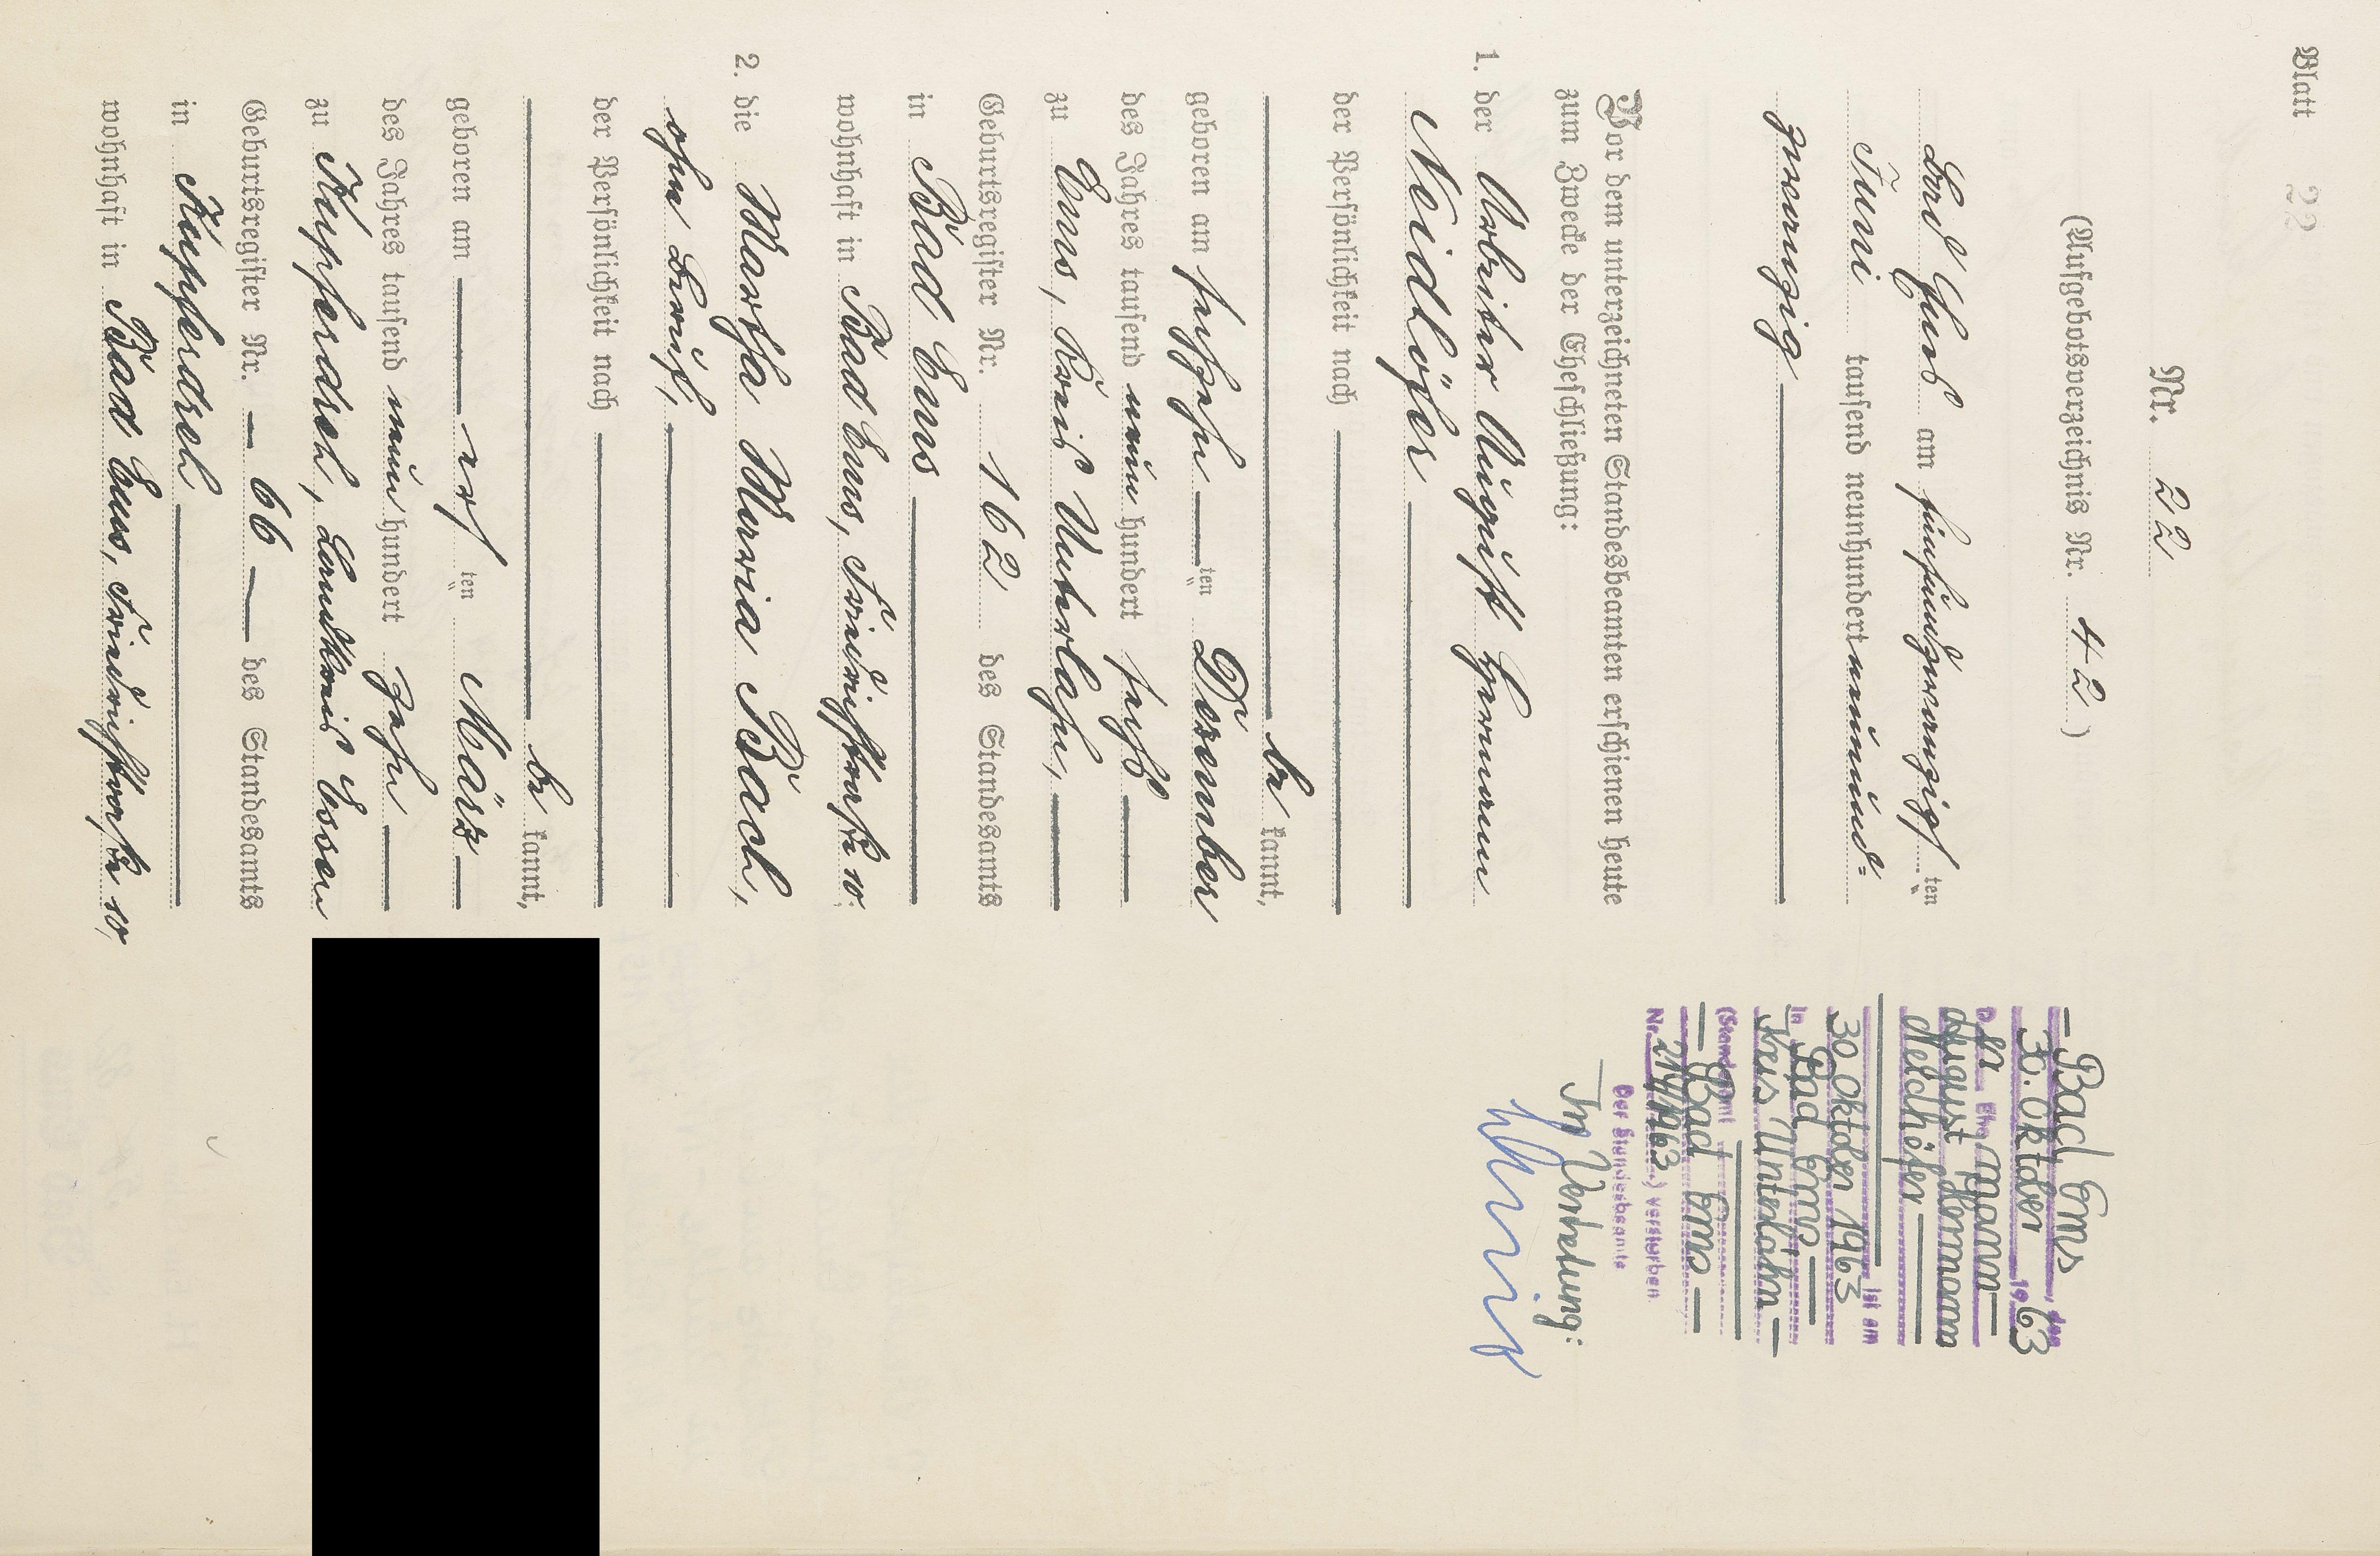 Blatt 22
Nr. 22
(Aufgebotsverzeichnis Nr. 42)
Bad Ems am fünfundzwanzigsten
Juni tausend neunhundert neunund=
zwanzig
Vor dem unterzeichneten Standesbeamten erschienen heute
zum Zwecke der Eheschließung:
1. der Arbeiter August Hermann
Neidhöfer
der Persönlichkeit nach
be kannt,
geboren am sechzehn ten Dezember
des Jahres tausend neun hundert sechs
zu Ems, Kreis Unterlahn,
Geburtsregister Nr. 162 des Standesamts
in Bad Ems
wohnhaft in Bad Ems, Friedrichstraße 10.
2. die Martha Maria Bach,
ohne Beruf,
der Persönlichkeit nach
be kannt,
geboren am acht ten März
des Jahres tausend neun hundert zehn
zu Kupferdreh, Landkreis Essen
Geburtsregister Nr. 66 des Standesamts
in Kupferdreh
wohnhaft in Bad Ems, Friedrichstraße 10,
Bad Ems, den
30. Oktober 1963
Der Ehemann
August Hermann
Neidhöfer
ist am
30. Oktober 1963
in Bad Ems
Kreis Unterlahn
(Standesamt
Bad Ems
Nr. 214/1963) verstorben.
Der Standesbeamte
In Vertretung: